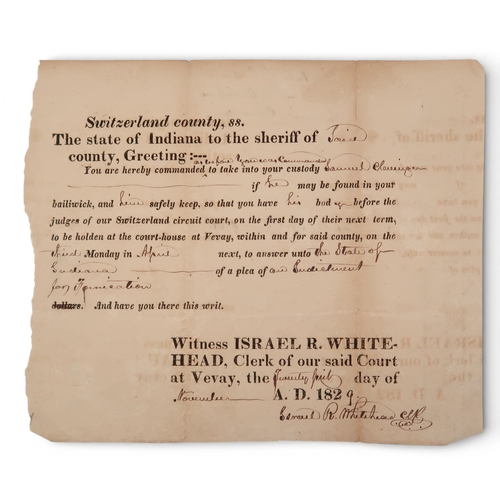 Switzerland county, ss.
The state of Indiana to the sheriff of Said
county, Greeting:---
as before you was Commanded
You are hereby commanded ^ to take into your custody Samuel
if he may be found in your
bailiwick, and him safely keep, so that you have his body before the
judges of our Switzerland circuit court, on the first day of their next term,
to be holden at the court-house at Vevay, within and for said county, on the
third Monday in April next, to answer unto the State of
Indiana of a plea of an Indictment
for Fornication
dollars. And have you there this writ.
Witness ISRAEL R. WHITE-
HEAD, Clerk of our said Court
at Vevay, the Twenty first day of
November A. D. 1829.
Israel R. Whitehead Clk